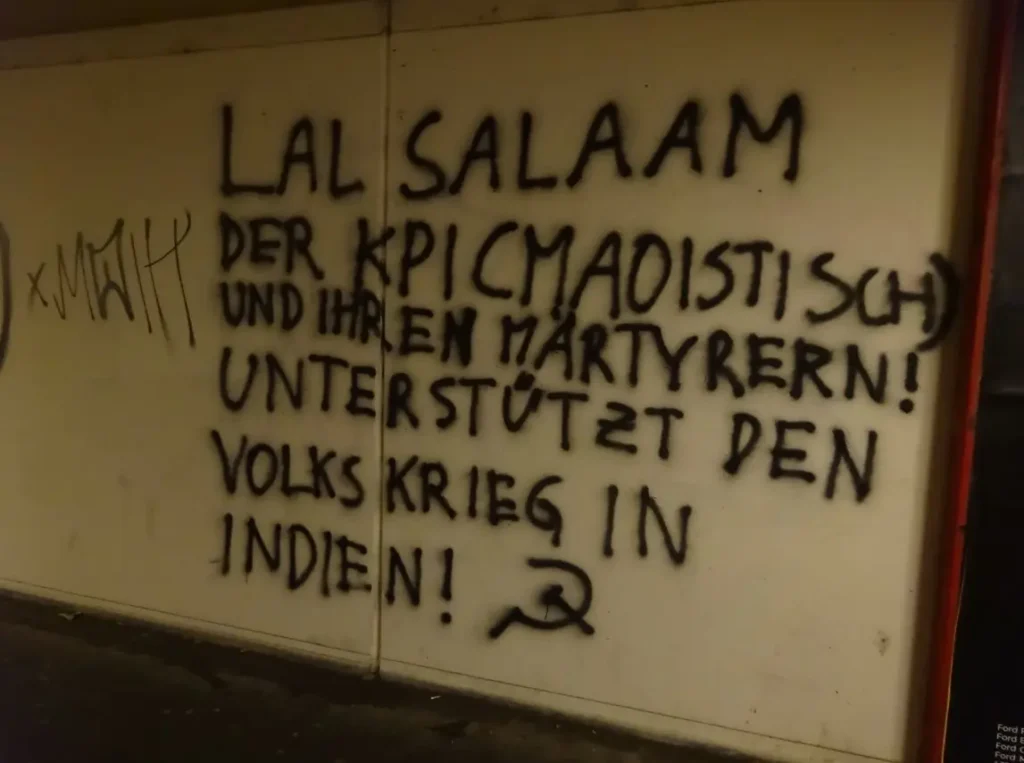 LAL SALAAM
DER KPI(MAOISTISCH)
UND IHREN MÄRTYRERN!
UNTERSTÜTZT DEN
VOLKSKRIEG IN
INDIEN!
Ford
Ford
Ford
Ford